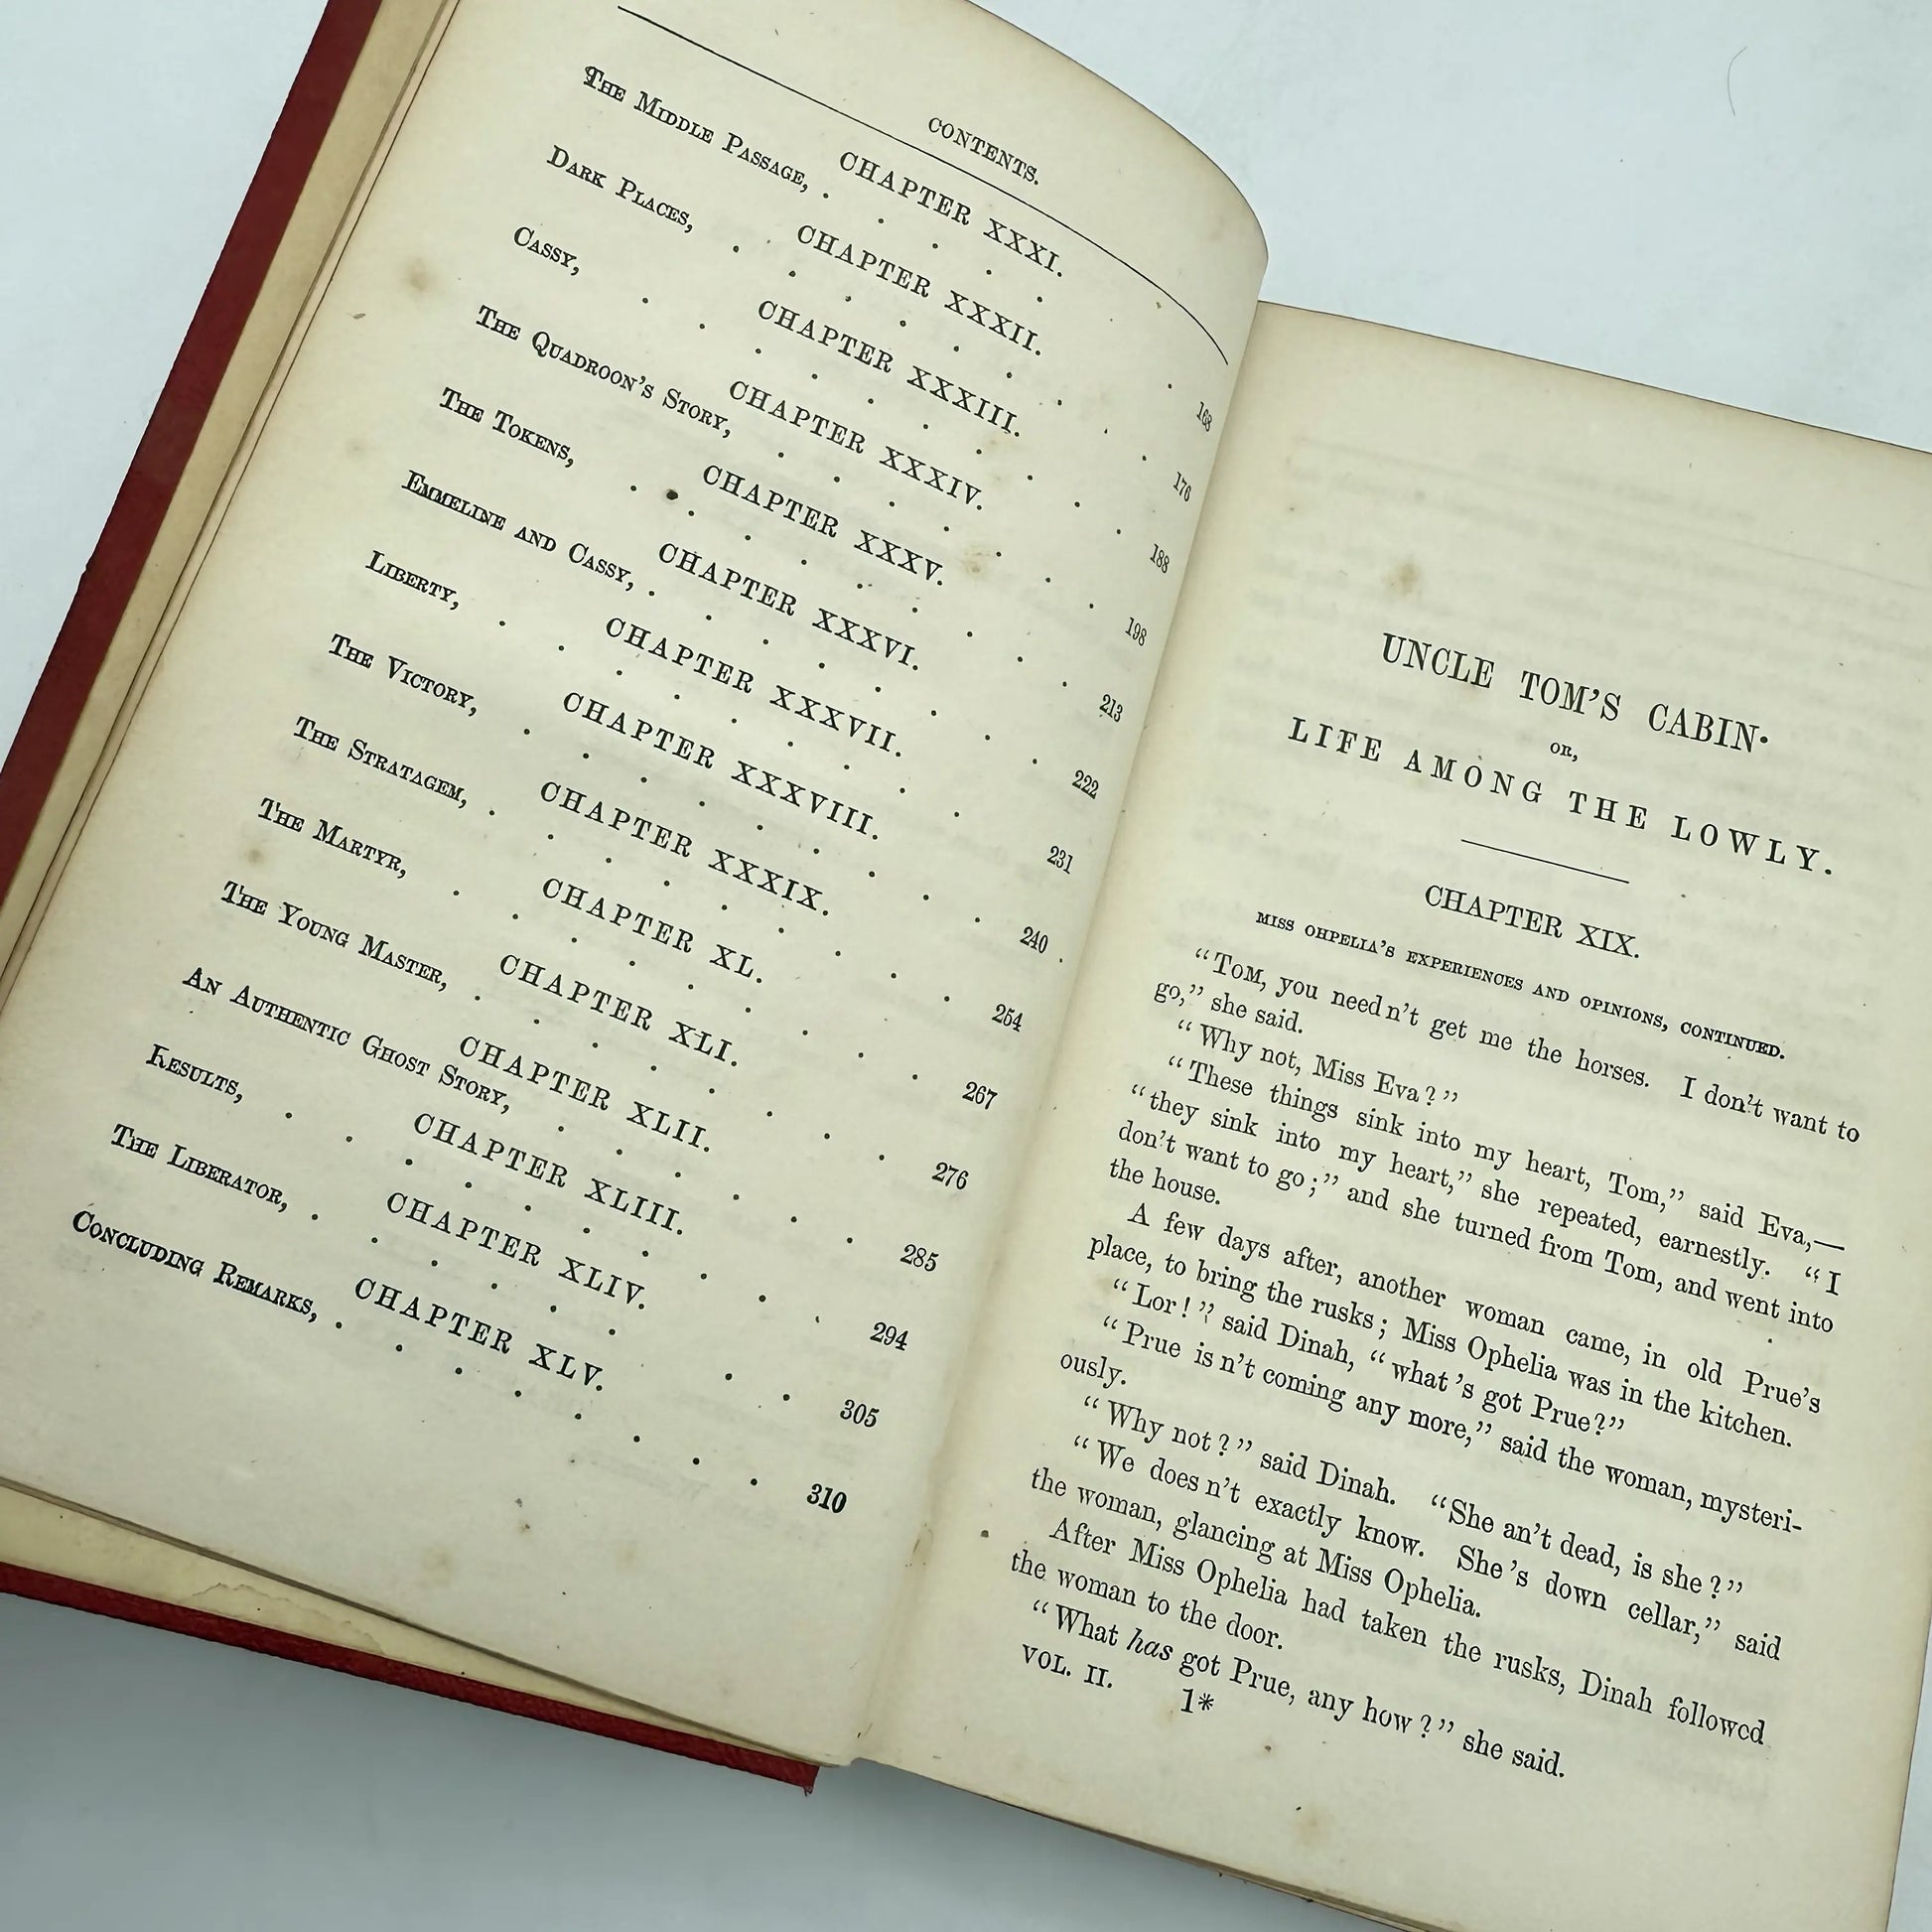 CONTENTS.
CHAPTER XXXI.
THE MIDDLE PASSAGE, . . . . . . 168
CHAPTER XXXII.
DARK PLACES, . . . . . . . . 176
CHAPTER XXXIII.
CASSY, . . . . . . . . . . 188
CHAPTER XXXIV.
THE QUADROON'S STORY, . . . . . . . 198
CHAPTER XXXV.
THE TOKENS, . . . . . . . . . 213
CHAPTER XXXVI.
EMMELINE AND CASSY, . . . . . . . . 222
CHAPTER XXXVII.
LIBERTY, . . . . . . . . . 231
CHAPTER XXXVIII.
THE VICTORY, . . . . . . . . . 240
CHAPTER XXXIX.
THE STRATAGEM, . . . . . . . . . 254
CHAPTER XL.
THE MARTYR, . . . . . . . . . 267
CHAPTER XLI.
THE YOUNG MASTER, . . . . . . . . 276
CHAPTER XLII.
AN AUTHENTIC GHOST STORY, . . . . . . 285
CHAPTER XLIII.
RESULTS, . . . . . . . . . . 294
CHAPTER XLIV.
THE LIBERATOR, . . . . . . . . 305
CHAPTER XLV.
CONCLUDING REMARKS, . . . . . . . . 310
UNCLE TOM'S CABIN·
OR,
LIFE AMONG THE LOWLY.
CHAPTER XIX.
MISS OHPELIA'S EXPERIENCES AND OPINIONS, CONTINUED.
"TOM, you need n't get me the horses. I don't want to
go," she said.
"Why not, Miss Eva?"
"These things sink into my heart, Tom," said Eva,—
"they sink into my heart," she repeated, earnestly. "I
don't want to go;" and she turned from Tom, and went into
the house.
A few days after, another woman came, in old Prue's
place, to bring the rusks; Miss Ophelia was in the kitchen.
"Lor!" said Dinah, "what 's got Prue?"
"Prue is n't coming any more," said the woman, mysteri-
ously.
"Why not?" said Dinah. "She an't dead, is she?"
"We does n't exactly know. She 's down cellar," said
the woman, glancing at Miss Ophelia.
After Miss Ophelia had taken the rusks, Dinah followed
the woman to the door.
"What has got Prue, any how?" she said.
VOL. II. 1*